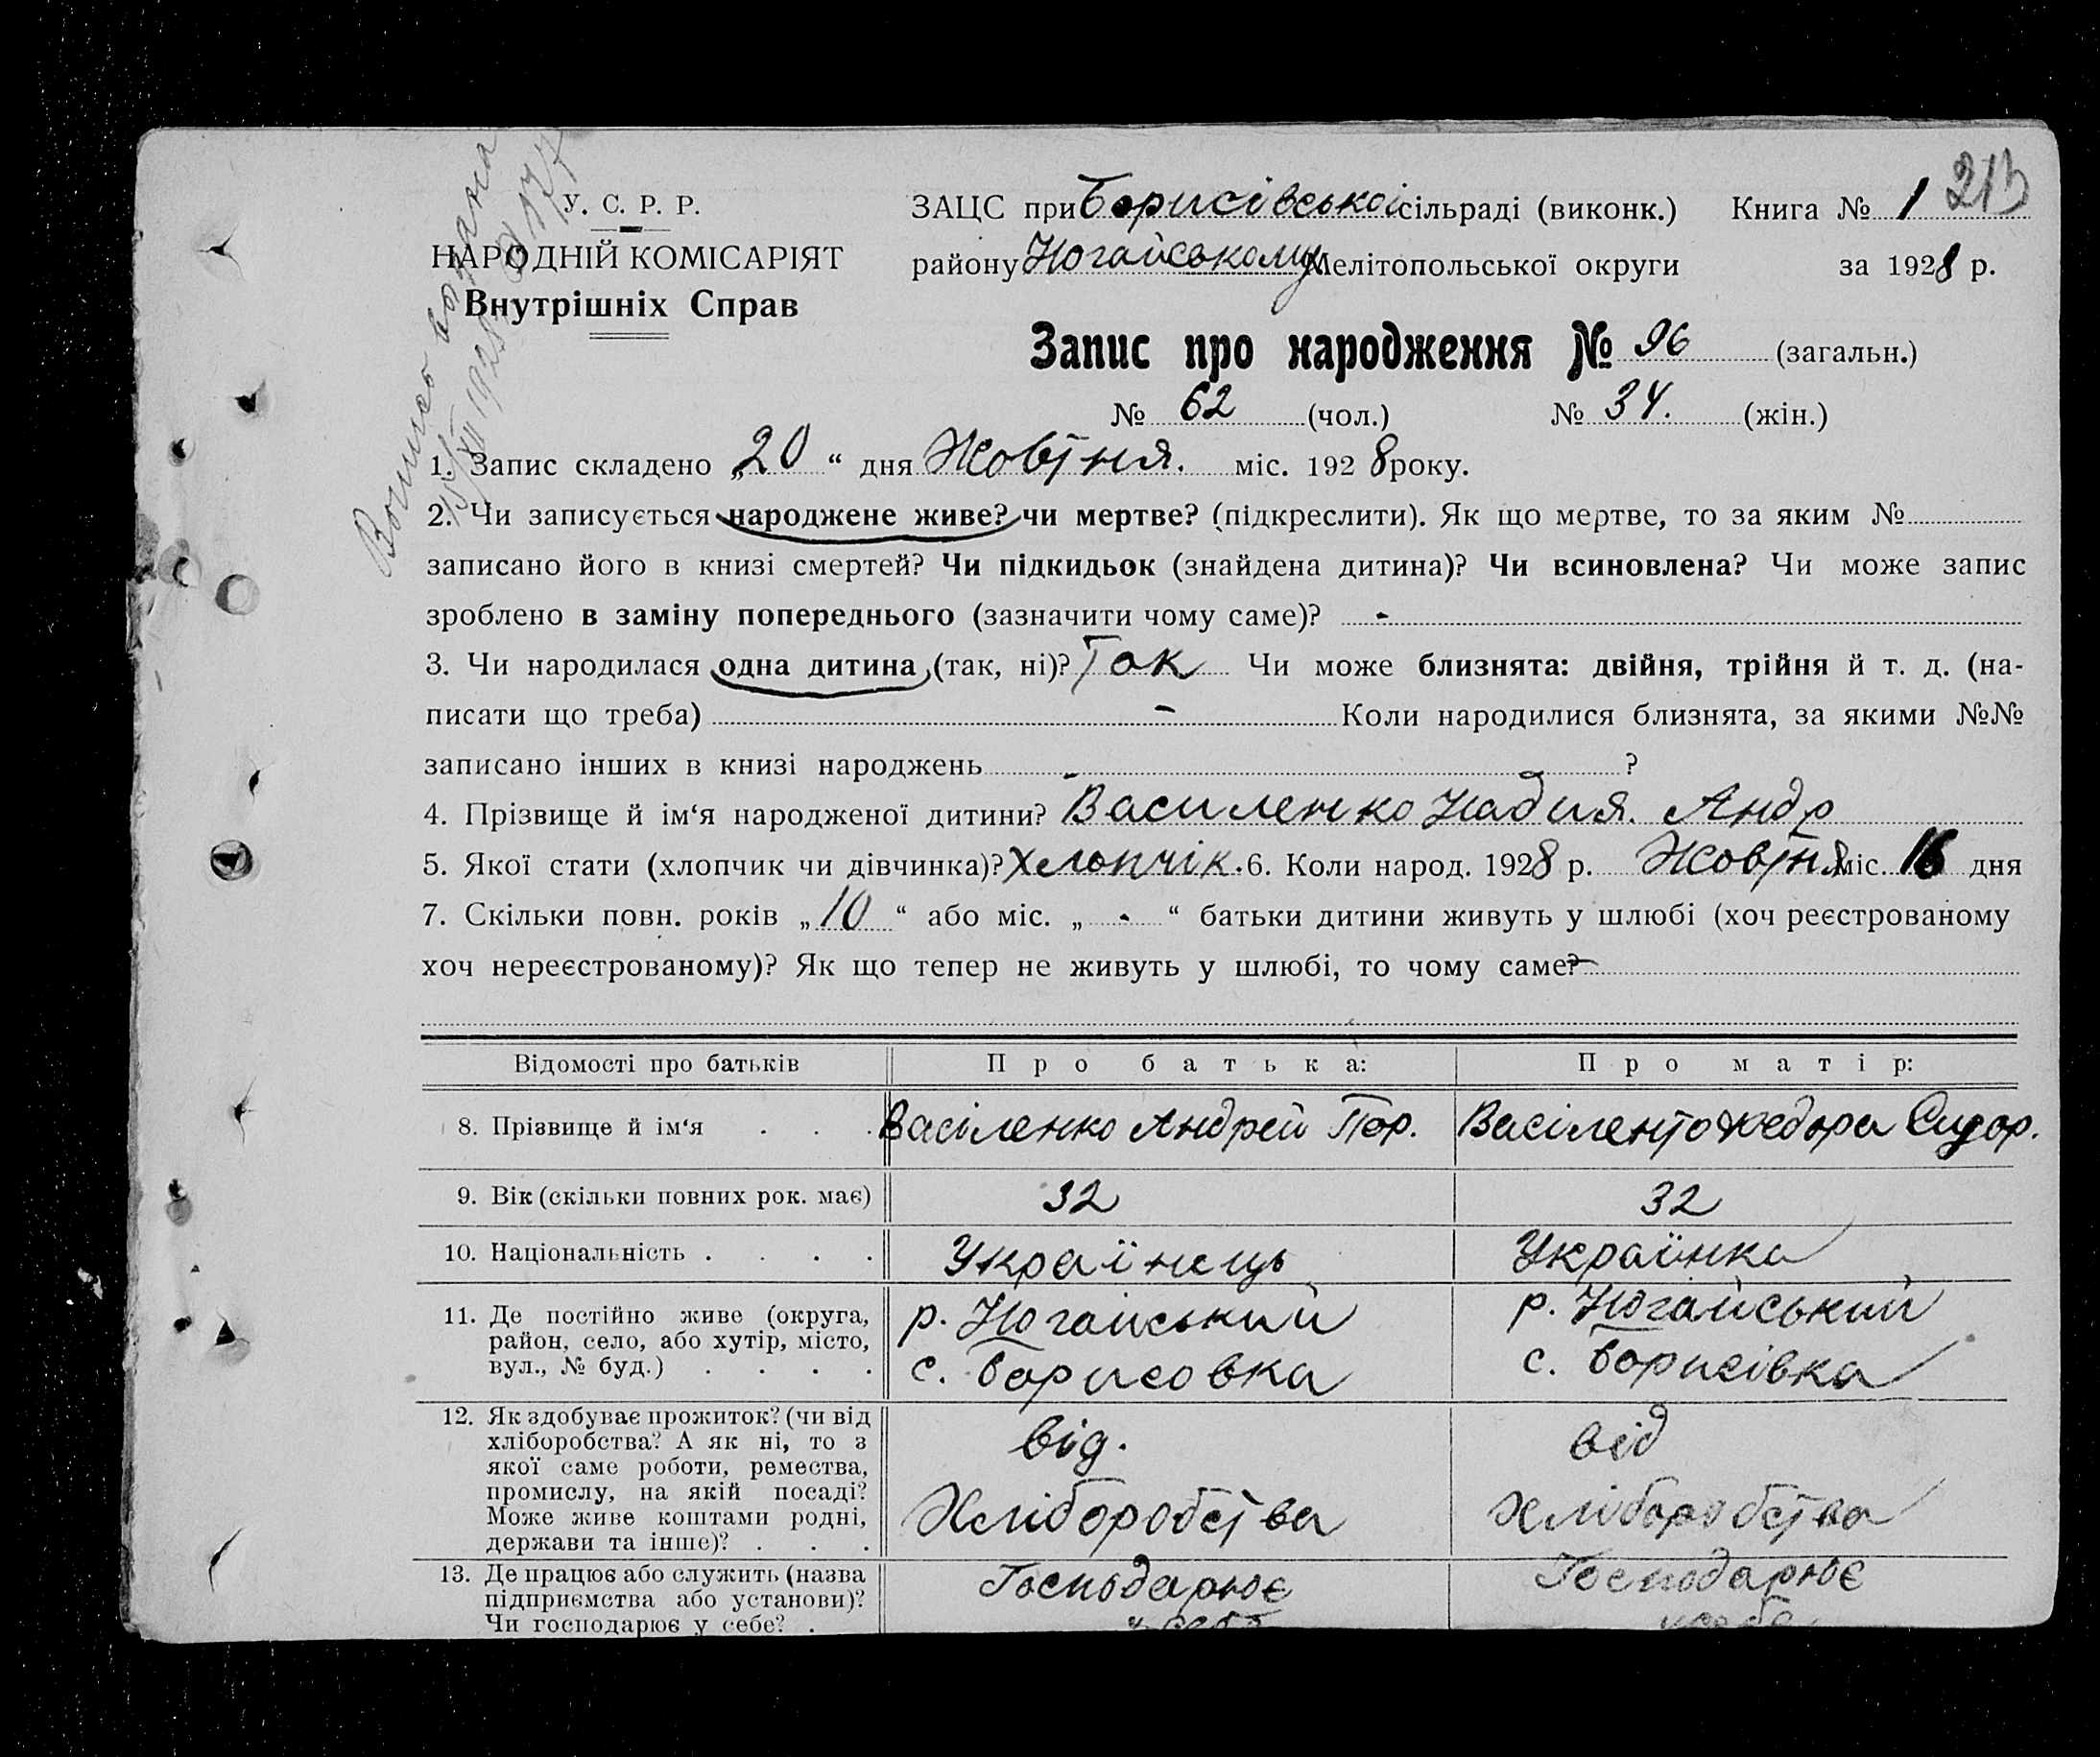 213
У. С. Р. Р.
НАРОДНІЙ КОМІСАРІЯТ
Внутрішніх Справ
ЗАЦС при Борисівськоі сільраді (виконк.) Книга № 1
району Ногайському Мелітопольської округи за 1928 р.
Запис про народження № 96 (загальн.)
№ 62 (чол.) № 34. (жін.)
1. Запис складено „20“ дня Жовтня. міс. 1928 року.
2. Чи записується народжене живе? чи мертве? (підкреслити). Як що мертве, то за яким №
записано його в книзі смертей? Чи підкидьок (знайдена дитина)? Чи всиновлена? Чи може запис
зроблено в заміну попереднього (зазначити чому саме)? -
3. Чи народилася одна дитина (так, ні)? Так Чи може близнята: двійня, трійня й т. д. (на-
писати що треба) - Коли народилися близнята, за якими №№
записано інших в книзі народжень - ?
4. Прізвище й ім‘я народженої дитини? Василенко Надия. Андр
5. Якої стати (хлопчик чи дівчинка)? Хлопчік. 6. Коли народ. 1928 р. Жовтня міс. 16 дня
7. Скільки повн. років „10“ або міс. „-“ батьки дитини живуть у шлюбі (хоч реєстрованому
хоч нереєстрованому)? Як що тепер не живуть у шлюбі, то чому саме? -
Відомості про батьків Про батька: Про матір:
8. Прізвище й ім‘я . . . Васіленко Андрей Пор. Васіленко Федора Сидор.
9. Вік (скільки повних рок. має) 32 32
10. Національність . . . . Українець Українка
11. Де постійно живе (округа, р. Ногайський р. Ногайський
район, село, або хутір, місто,
вул., № буд.) . . . . с. Борисовка с. Борисівка
12. Як здобуває прожиток? (чи від від. від
хліборобства? А як ні, то з
якої саме роботи, ремества,
промислу, на якій посаді? Хліборобства Хліборобства
Може живе коштами родні,
держави та інше)? . . .
13. Де працює або служить (назва Господарює Господарює
підприємства або установи)?
Чи господарює у себе? . у себе у себе